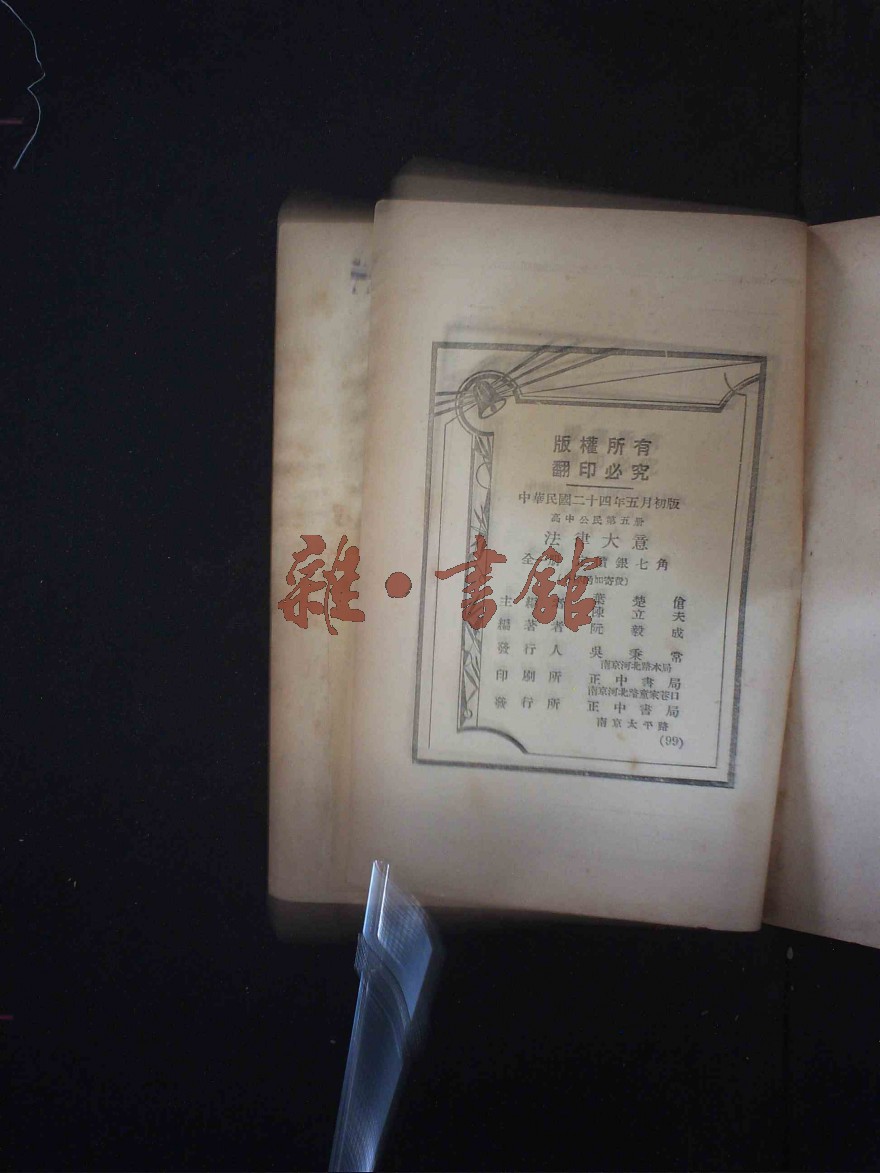 版權所有
翻印必究
中華民國二十四年五月初版
高中公民第五册
法律大意
全 實銀七角
加寄費)
主編者 葉楚傖
陳立夫
編著者 阮毅成
發行人 吳秉常
南京河北路本局
印刷所 正中書局
南京河北路童家巷口
發行所 正中書局
南京太平路
(99)
雜·書館